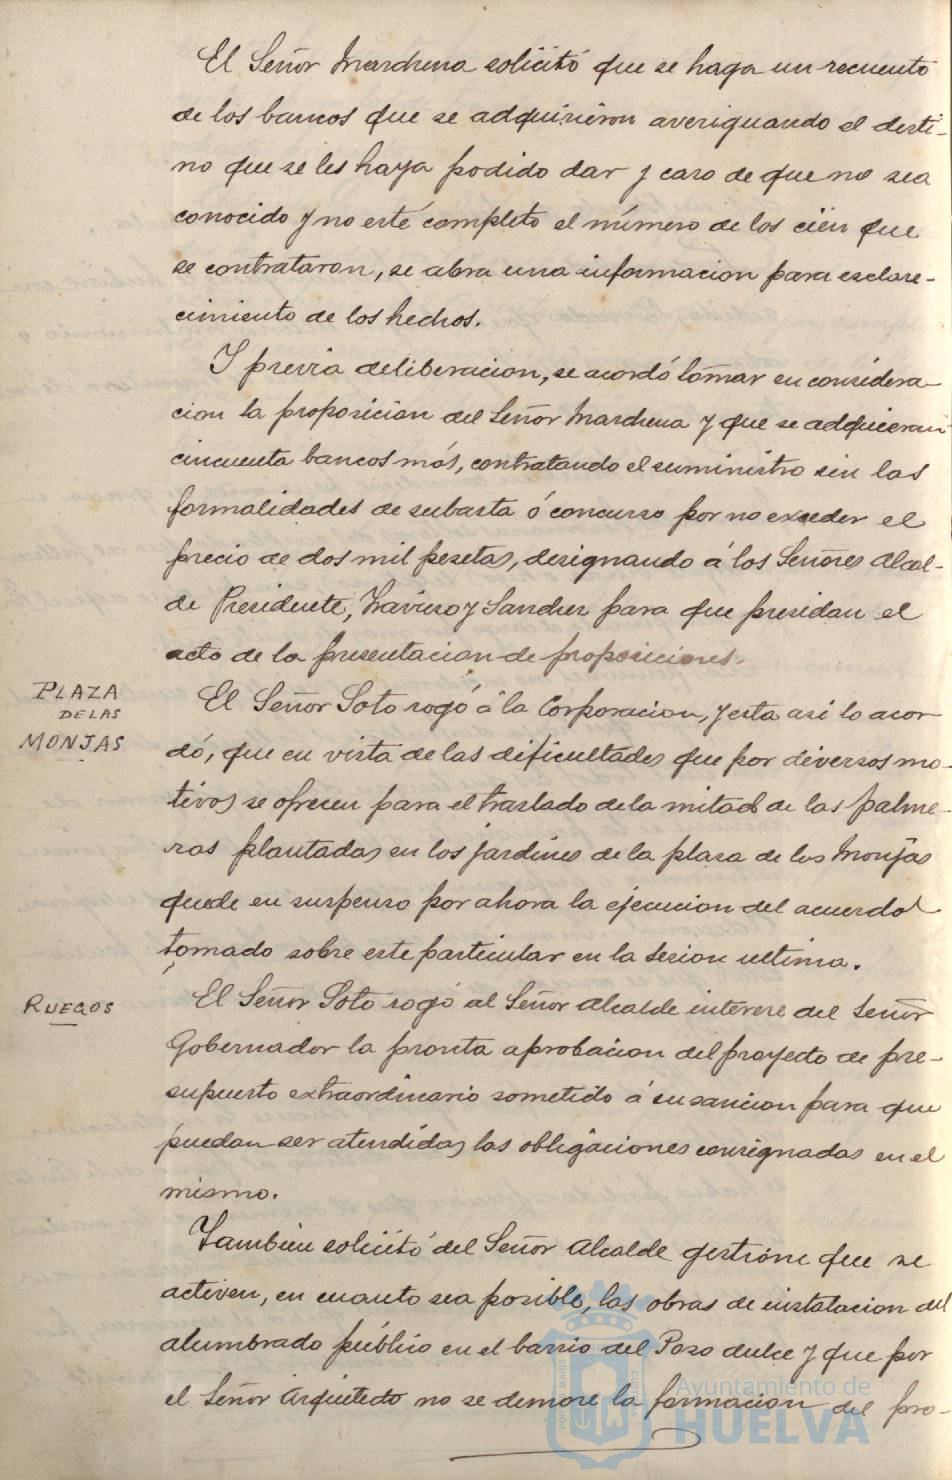 El Señor Marchena solicitó que se haga un recuento
de los bancos que se adquirieron averiguando el desti-
no que se les haya podido dar y caso de que no sea
conocido y no esté completo el número de los cien que
se contrataron, se abra una informacion para esclare-
cimiento de los hechos.
Y previa deliberacion, se acordó tomar en considera-
cion la proposicion del Señor Marchena y que se adquieran
cincuenta bancos más, contratando el suministro sin las
formalidades de subasta ó concurso por no exceder el
precio de dos mil pesetas, designando á los Señores Alcal-
de Presidente, Traviso y Sanchez para que presidan el
acto de la presentacion de proposiciones.
PLAZA
DE LAS
MONJAS
El Señor Soto rogó á la Corporacion, y esta asi lo acor-
dó, que en vista de las dificultades que por diversos mo-
tivos se ofrecen para el traslado de la mitad de las palme-
ras plantadas en los jardines de la plaza de las Monjas
quede en suspenso por ahora la ejecucion del acuerdo
tomado sobre este particular en la sesion ultima.
RUEGOS
El Señor Soto rogó al Señor Alcalde interese del Señor
Gobernador la pronta aprobacion del proyecto de pre-
supuesto extraordinario sometido á su sancion para que
puedan ser atendidas las obligaciones consignadas en el
mismo.
Tambien solicitó del Señor Alcalde gestione que se
activen, en cuanto sea posible, las obras de instalacion del
alumbrado público en el barrio del Pozo dulce y que por
el Señor Arquitecto no se demore la formacion del pro-
Ayuntamiento de
HUELVA